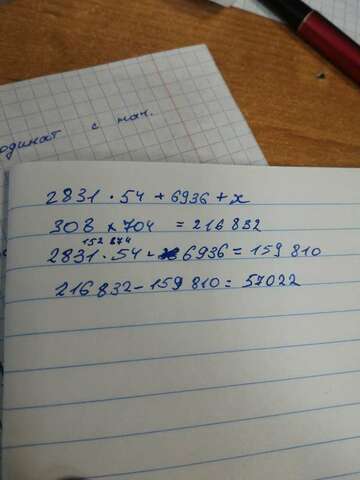 одинат с нач.
2831 · 54 + 6936 + x
308 x 704 = 216 832
152 874
2831 · 54 - 6936 = 159 810
216 832 - 159 810 = 57022